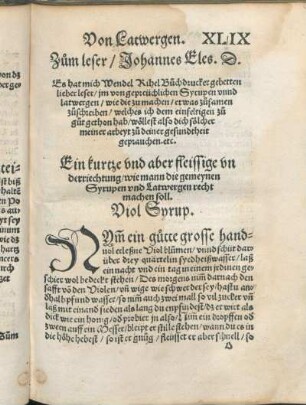 Von Latwergen. XLIX
Zům leser / Johannes Eles. D.
Es hat mich Wendel Rihel Bůchdrucker gebetten
lieber leser / jm von gepreüchlichen Syrupen vnnd
latwergen / wie die zu machen / etwas zůsamen
zůschreiben / welches ich dem einfeltigen zů
gůt gethon hab / wöllest also dich sölcher
meiner arbeyt zů deiner gesundtheit
geprauchen. etc.
Ein kurtze vnd aber fleissige vn
derrichtung / wie mann die gemeynen
Syrupen vnd Latwergen recht
machen soll.
Viol Syrup.
Nym̃ ein gůtte grosse hand-
uol erleßne Viol blůmen / vnnd schüt dar-
über drey quärtelin syedheiß wasser / laß
ein nacht vnd ein tag in einem jrdinen ge-
schirr wol bedeckt stehen / Des morgens nim̃ darnach den
safft võ den Violen / vñ wige wie schwer der sey / hastu an-
dhalb pfund wasser / so nim̃ auch zwei mall so vil zucker vñ
laß mit einand sieden als lang du empfindest / dz er wirt als
dick wie ein honig / od probier jn also / Nim̃ ein dropffen od
zween auff ein Messer / bleipt er stille stehen / wann du es in
die höhe hebest / so ist er gnůg / fleusset er aber schnell / so